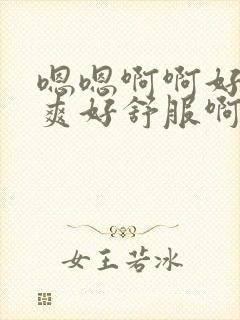 嗯嗯啊啊好
爽好舒服啊
女王若冰